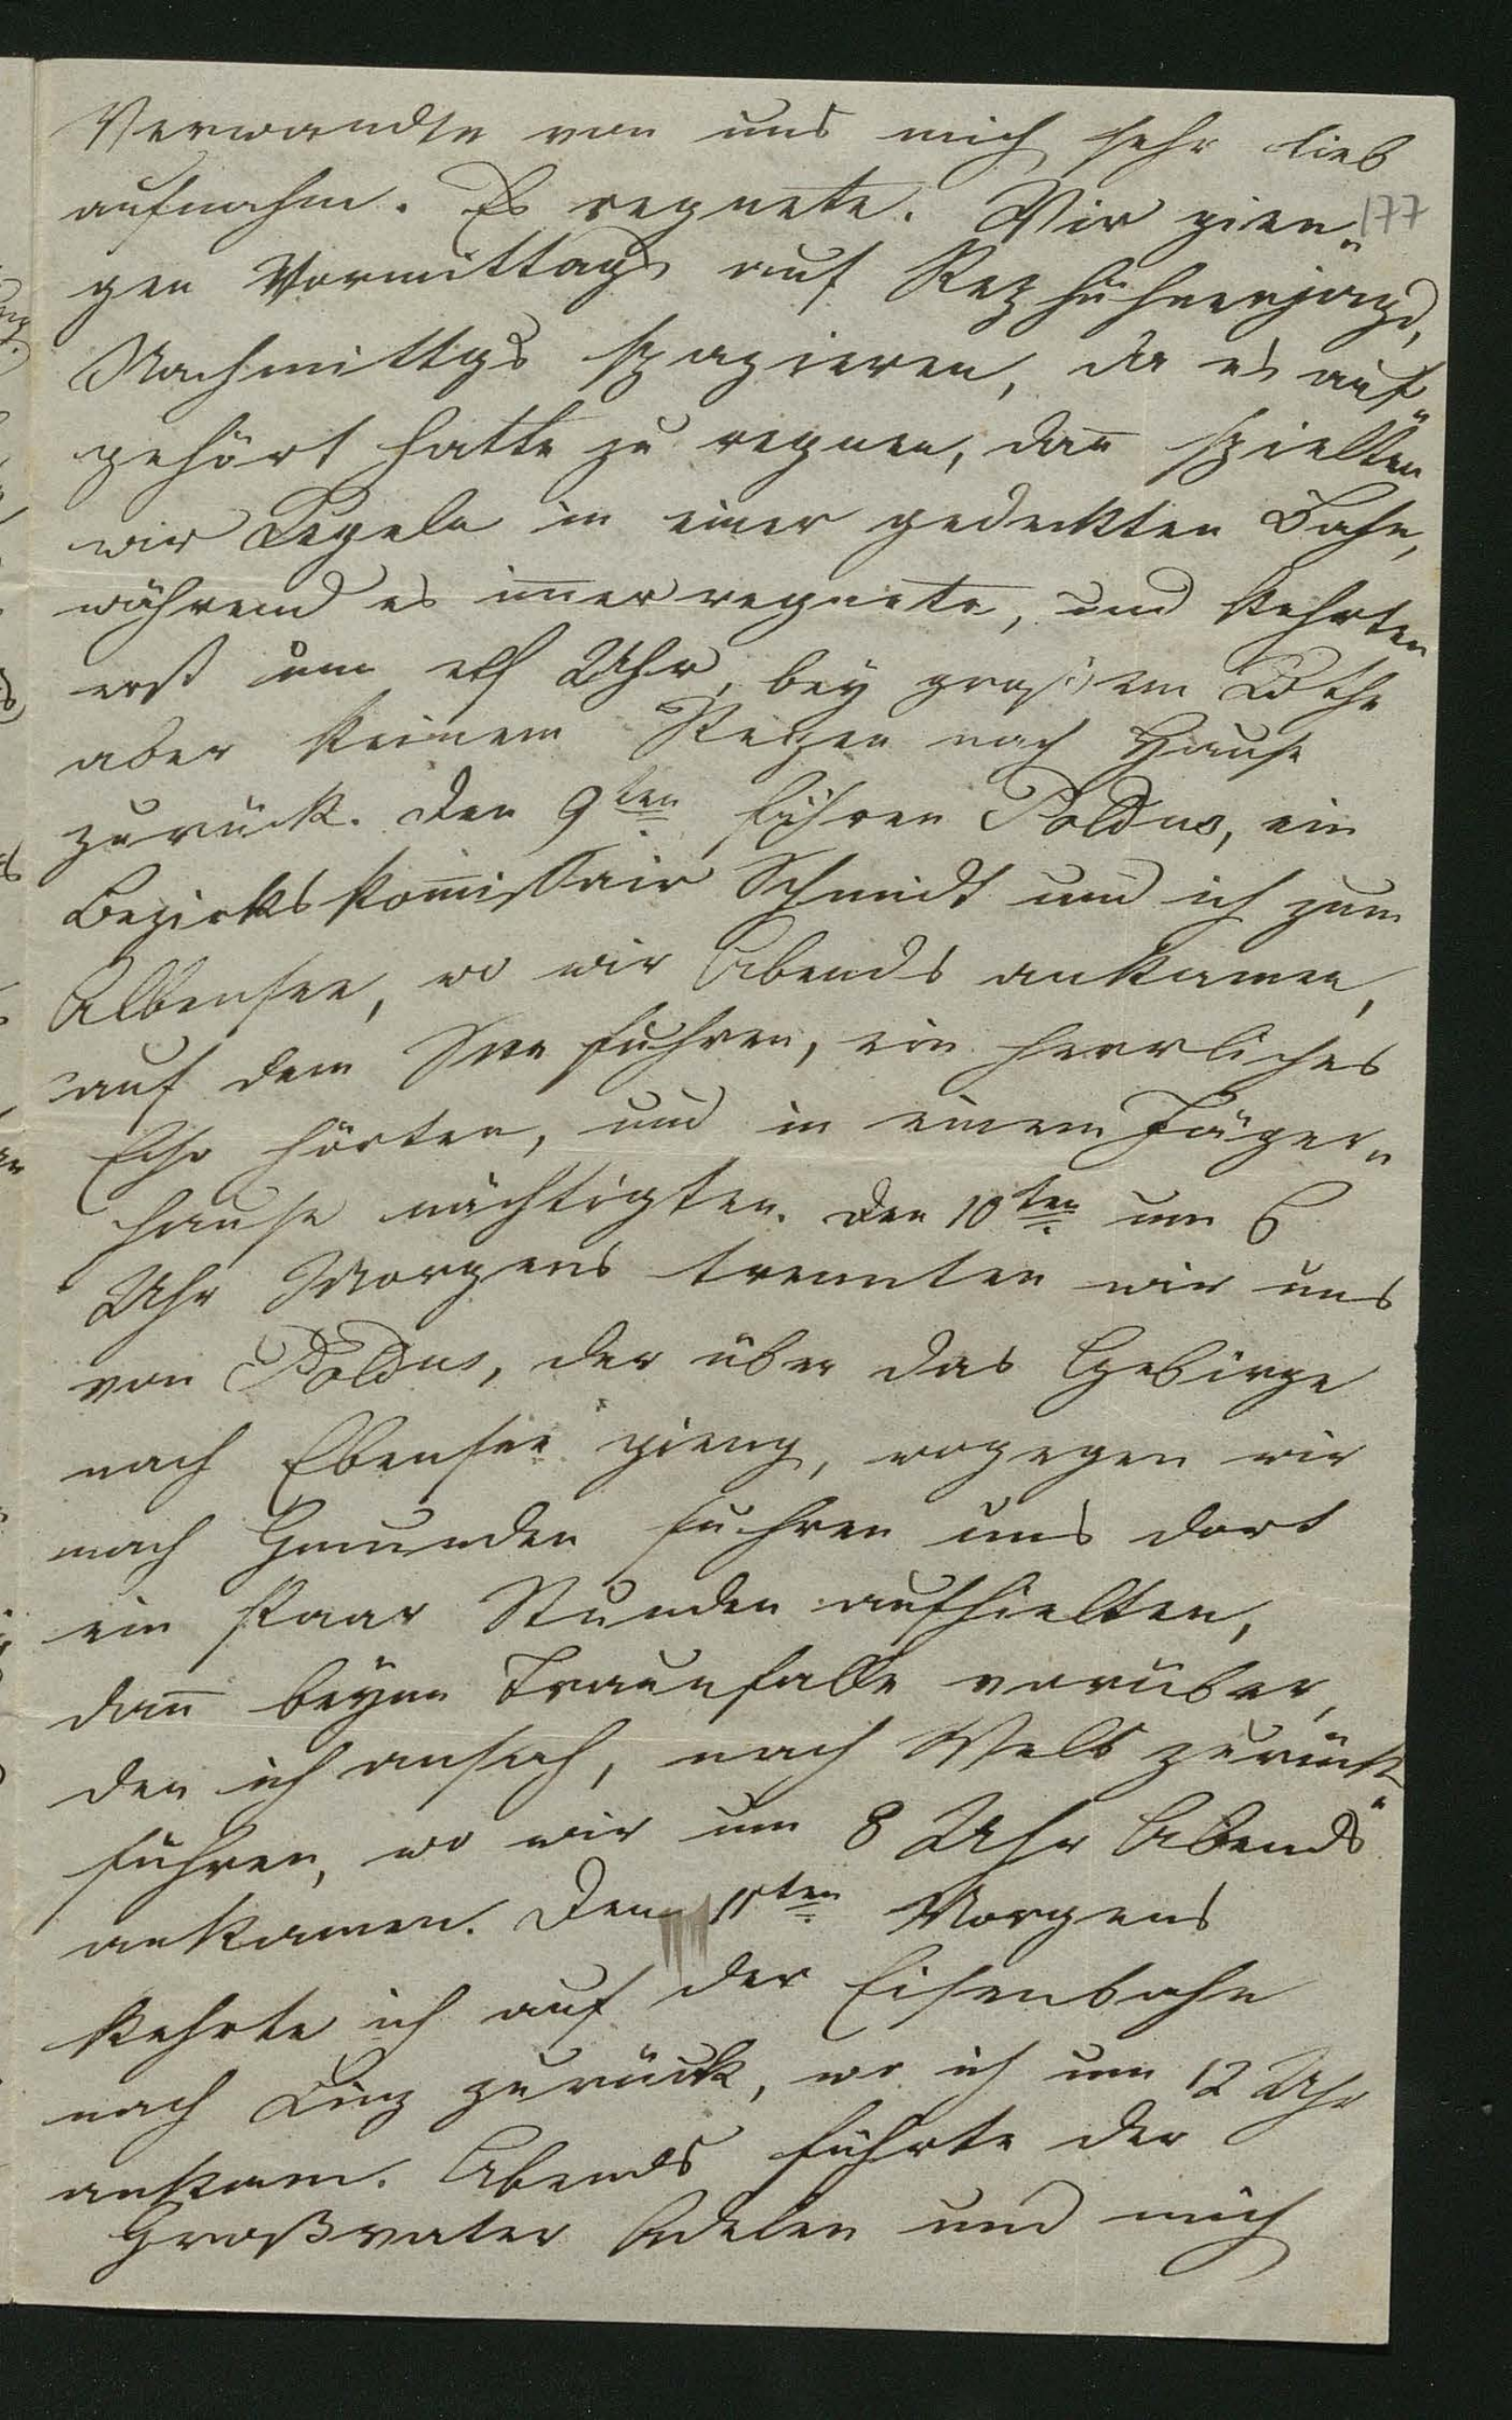 Verwandte von uns mich sehr lieb
aufnahm. Es regnete. Wir gien„
177
gen Vormittags auf Rezhühnerjagd,
Nachmittgs spazieren, da es auf„
gehört hatte zu regnen, dan̄ spielten
wir Kegeln in einer gedeckten Bahn,
während es im̄er regnete, und kehrten
erst um elf Uhr, bey großem Kothe
aber keinem Regen nach Hause
zurück. Den 9ten fuhren Poldus, ein
Bezirkskom̄issair Schmidt und ich zum
Albensee, wo wir Abends ankamen,
auf dem See fuhren, ein herrliches
Echo hörten, und in einem Jäger„
hause nächtigten. Den 10ten um 6
Uhr Morgens trennten wir uns
von Poldus, der über das Gebirge
nach Ebensee gieng, wogegen wir
nach Gmunden fuhren uns dort
ein Paar Stunden aufhielten,
dan̄ beym Traunfalle vorüber,
den ich ansah, nach Wels zurück„
fuhren, wo wir um 8 Uhr Abends
ankamen. Den 11ten Morgens
kehrte ich auf der Eisenbahn
nach Linz zurück, wo ich um 12 Uhr
ankam. Abends führte der
Großvater Adelen und mich